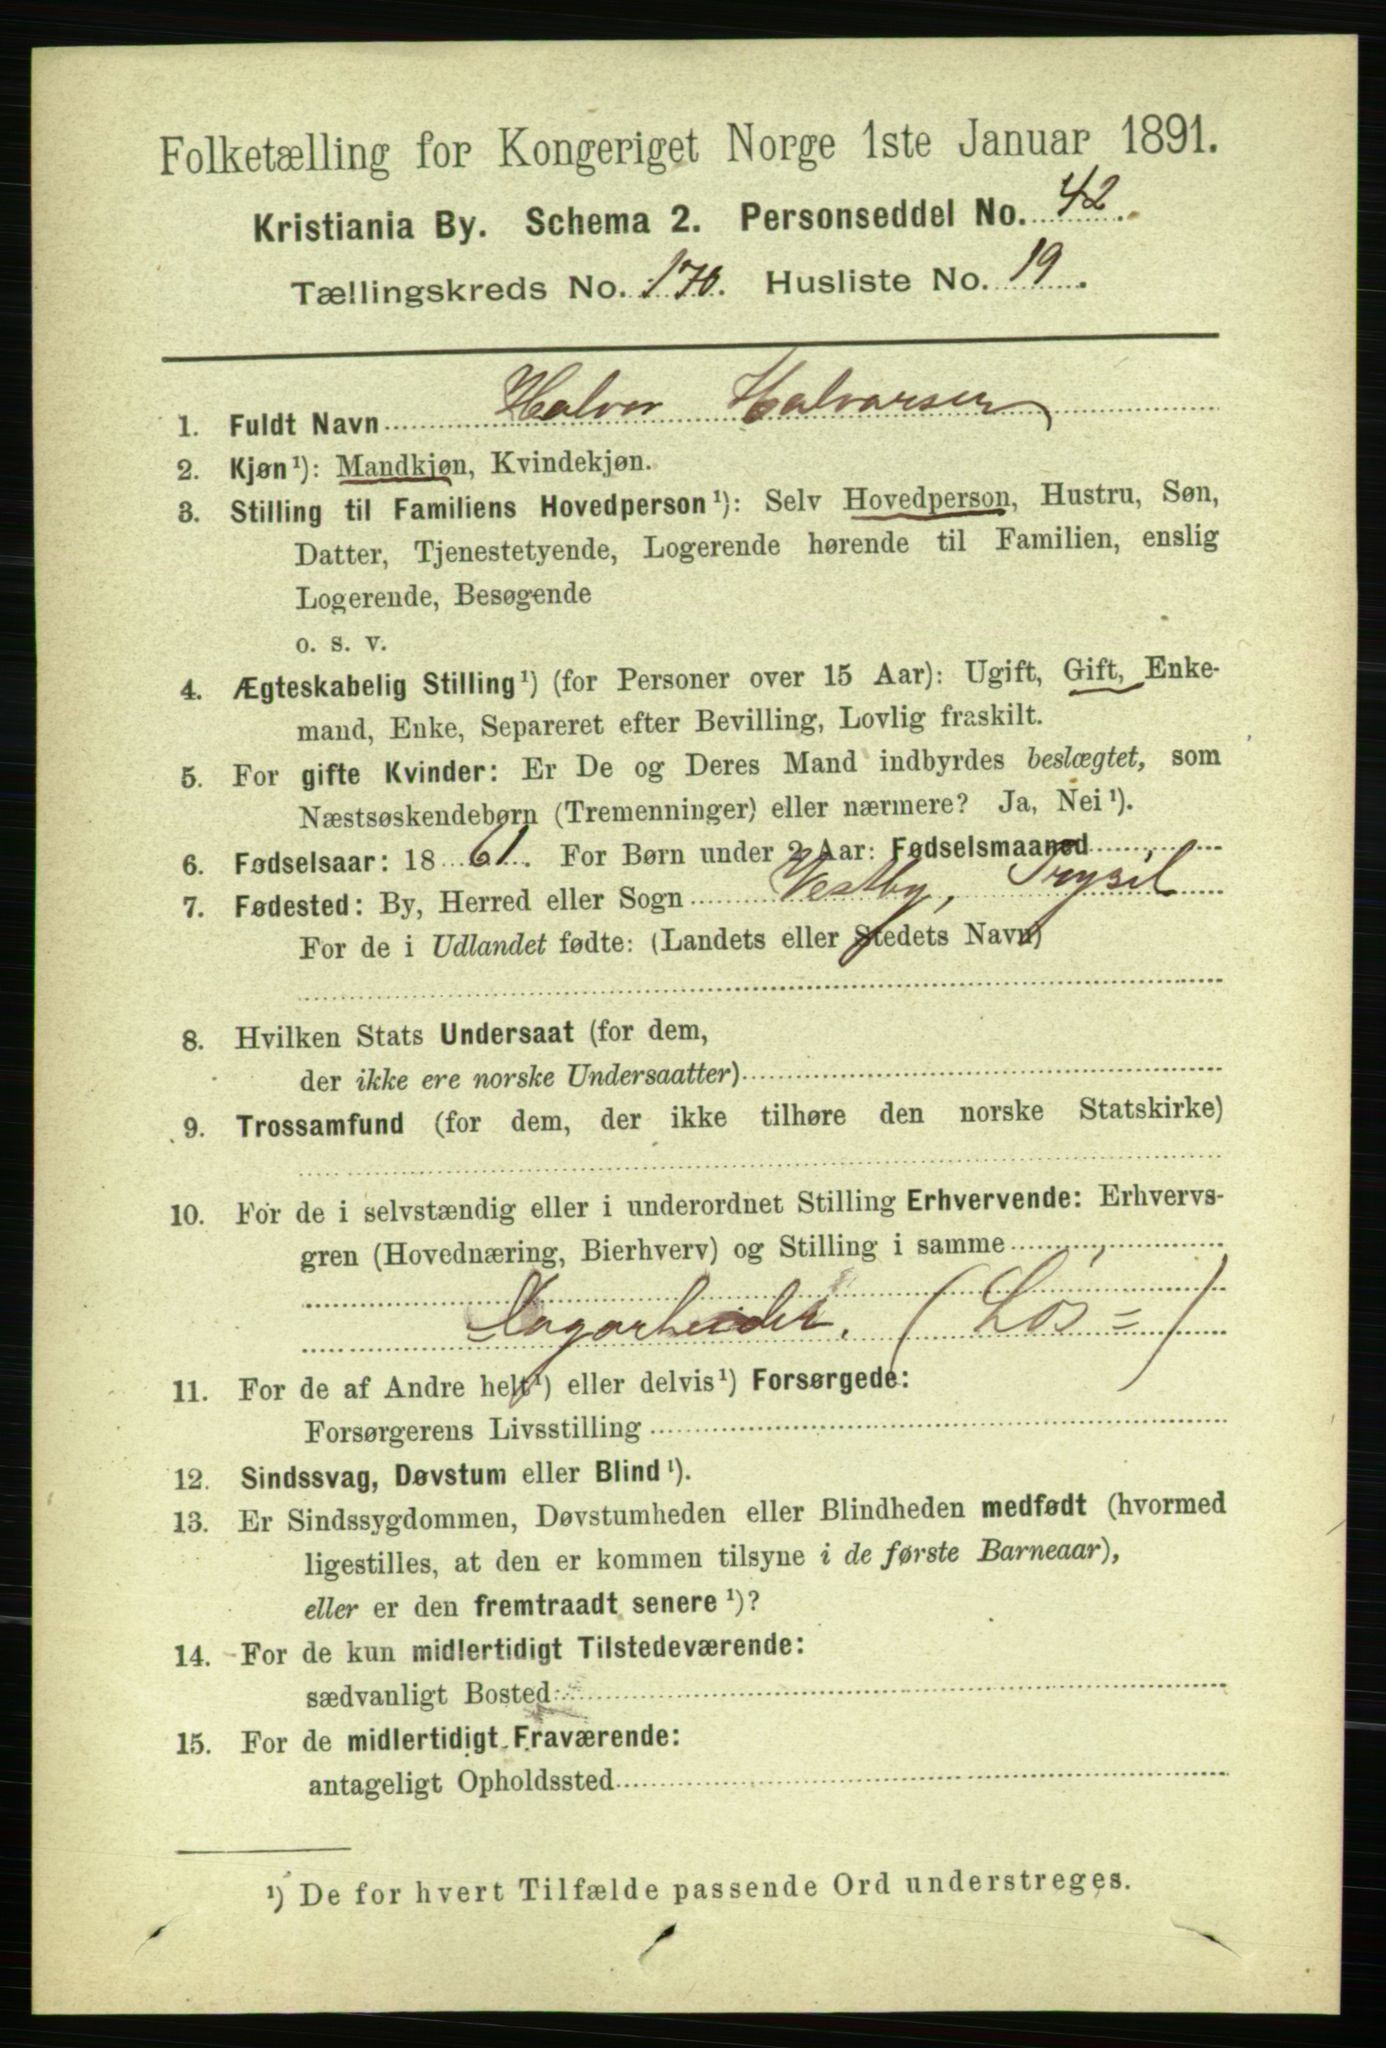 Folketælling for Kongeriget Norge 1ste Januar 1891.
Kristiania By. Schema 2. Personseddel No. 42.
Tællingskreds No. 170. Husliste No. 19.
1. Fuldt Navn Halvor Halvorsen
2. Kjøn¹): Mandkjøn, Kvindekjøn.
3. Stilling til Familiens Hovedperson¹): Selv Hovedperson, Hustru, Søn,
Datter, Tjenestetyende, Logerende hørende til Familien, enslig
Logerende, Besøgende
o. s. v.
4. Ægteskabelig Stilling¹) (for Personer over 15 Aar): Ugift, Gift, Enke-
mand, Enke, Separeret efter Bevilling, Lovlig fraskilt.
5. For gifte Kvinder: Er De og Deres Mand indbyrdes beslægtet, som
Næstsøskendebørn (Tremenninger) eller nærmere? Ja, Nei¹).
6. Fødselsaar: 1861. For Børn under 2 Aar: Fødselsmaaned
7. Fødested: By, Herred eller Sogn Vestby, Trysil
For de i Udlandet fødte: (Landets eller Stedets Navn)
8. Hvilken Stats Undersaat (for dem,
der ikke ere norske Undersaatter)
9. Trossamfund (for dem, der ikke tilhøre den norske Statskirke)
10. For de i selvstændig eller i underordnet Stilling Erhvervende: Erhvervs-
gren (Hovednæring, Bierhverv) og Stilling i samme
Dagarbeider. (Løs=)
11. For de af Andre helt¹) eller delvis¹) Forsørgede:
Forsørgerens Livsstilling
12. Sindssvag, Døvstum eller Blind¹).
13. Er Sindssygdommen, Døvstumheden eller Blindheden medfødt (hvormed
ligestilles, at den er kommen tilsyne i de første Barneaar),
eller er den fremtraadt senere¹)?
14. For de kun midlertidigt Tilstedeværende:
sædvanligt Bosted
15. For de midlertidigt Fraværende:
antageligt Opholdssted
¹) De for hvert Tilfælde passende Ord understreges.